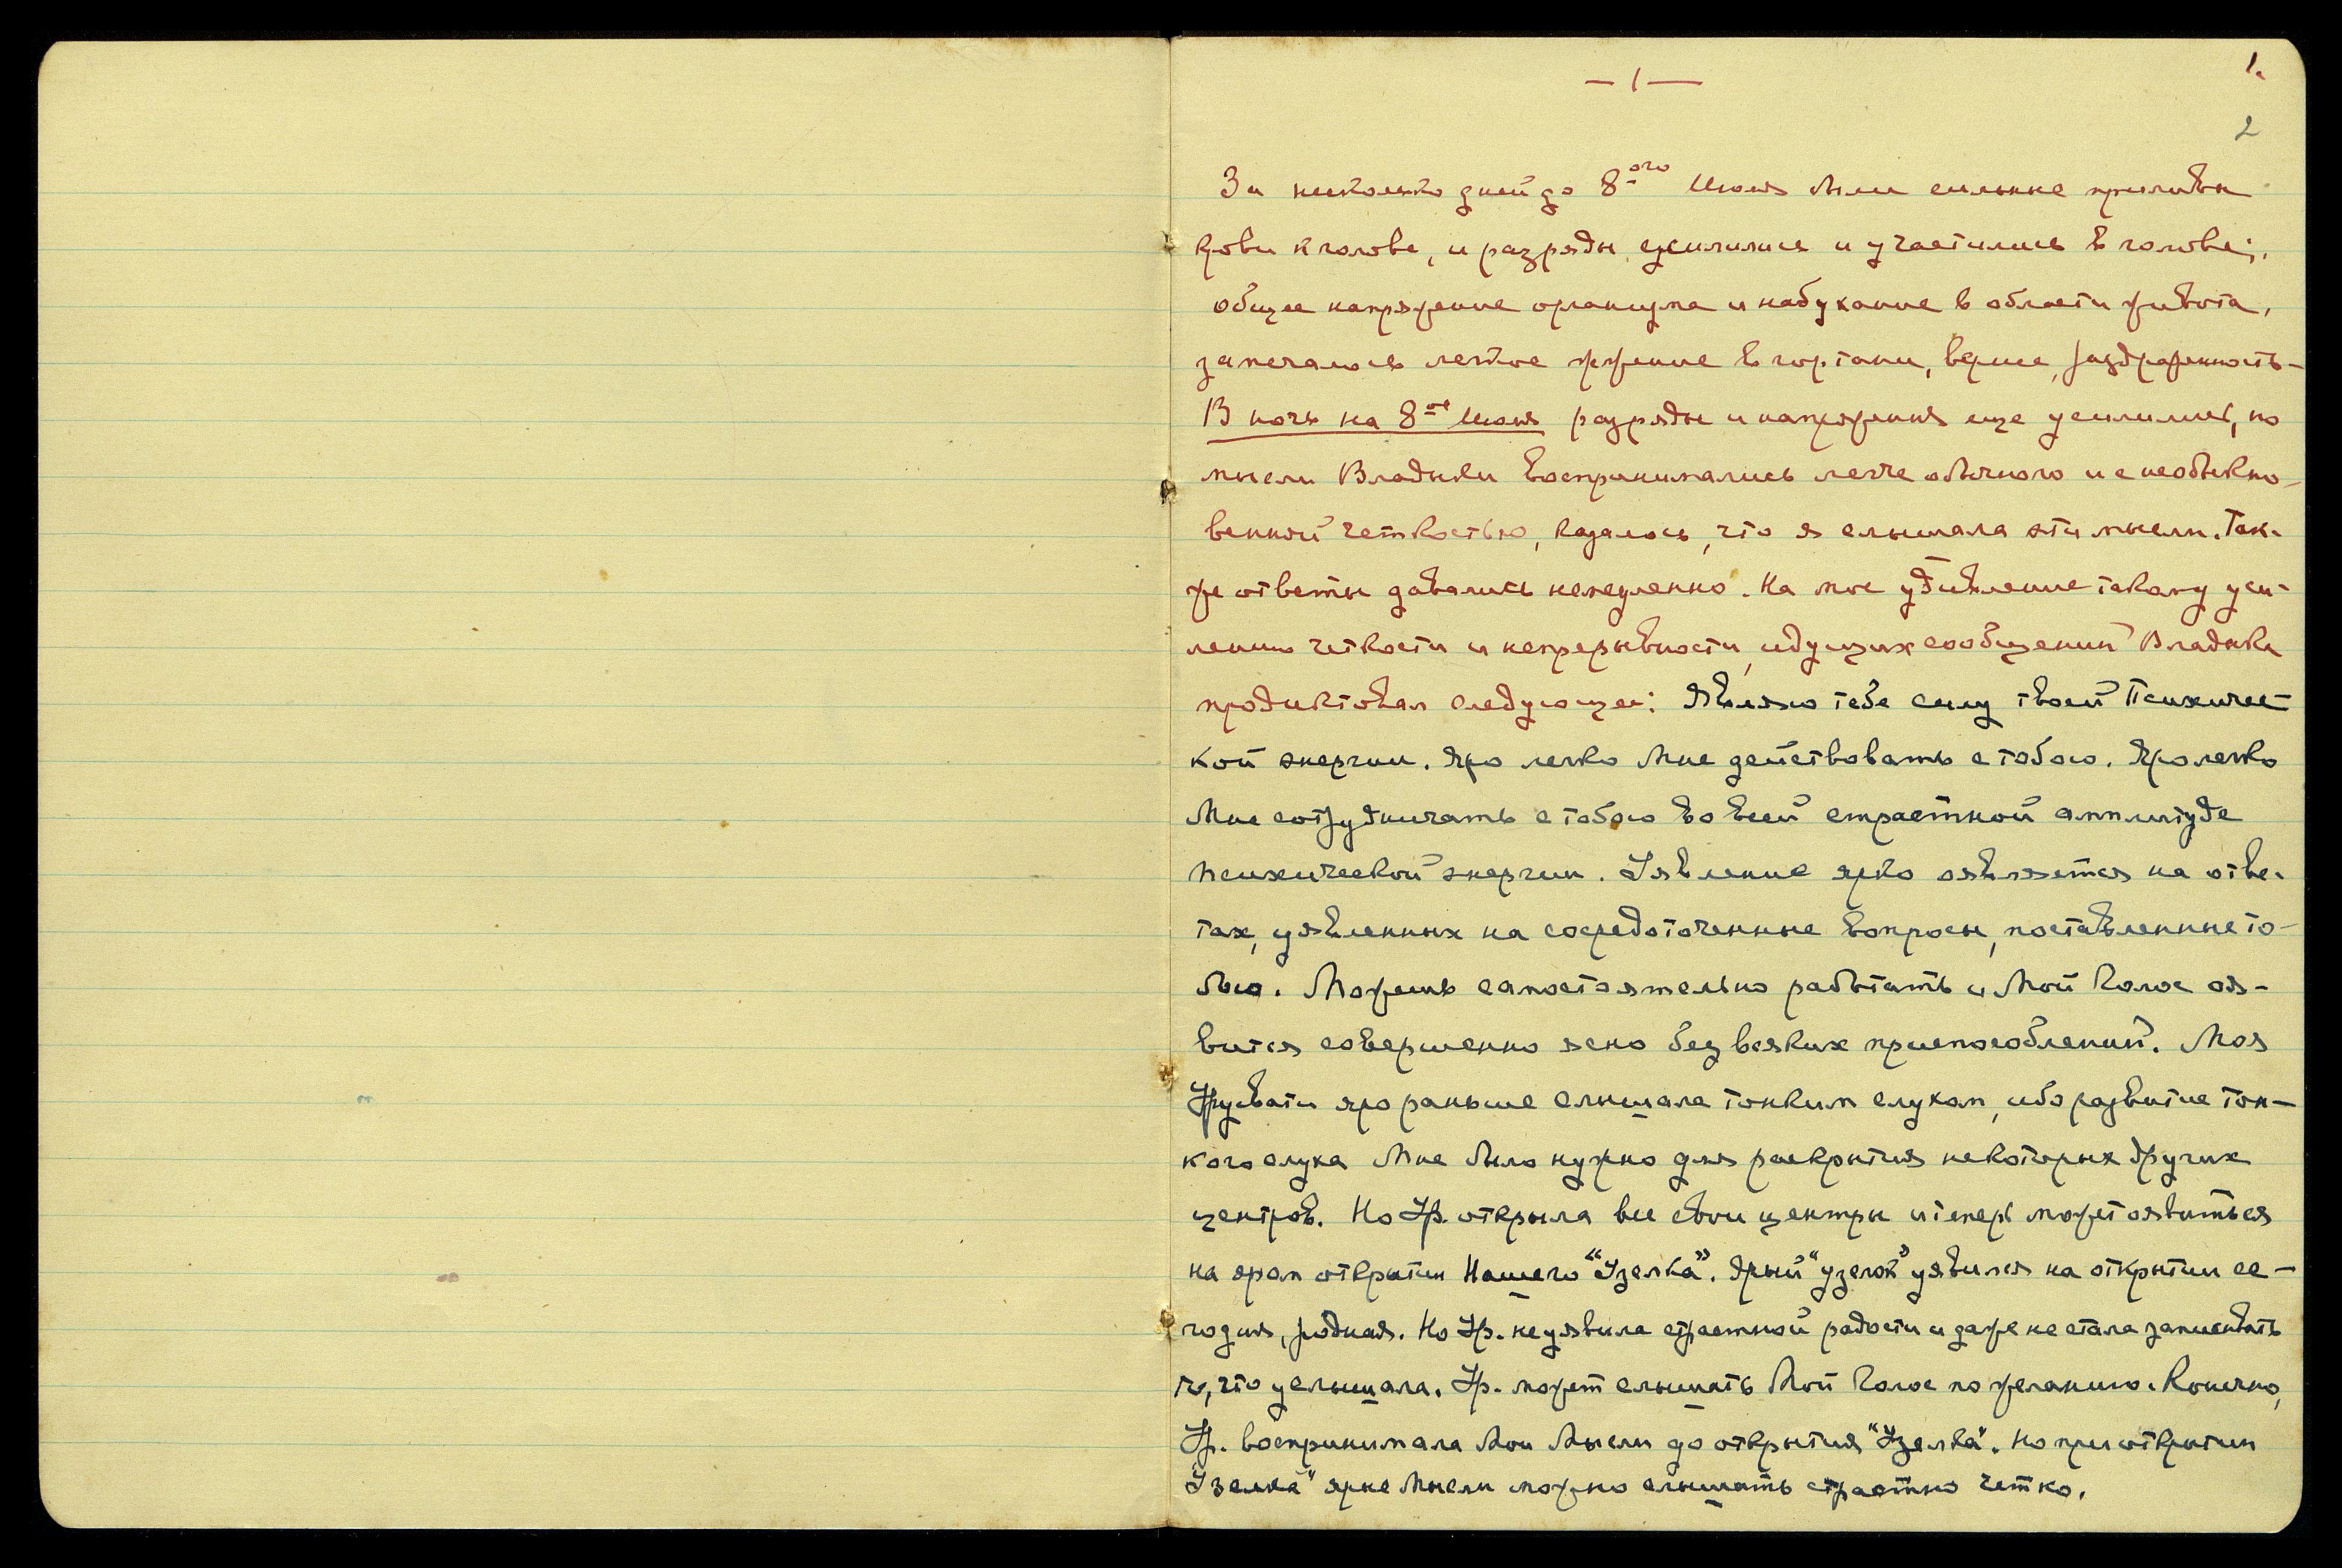 — 1 —
1.
2
За несколько дней до 8-ого Июня были сильные приливы
крови к голове, и разряды усилились и участились в голове;
общее напряжение организма и набухание в области живота,
замечалось легкое жжение в гортани, вернее, раздраженность –
В ночь на 8-ое Июня разряды и напряжения еще усилились, но
мысли Владыки воспринимались легче обычного и с необыкно-
венной четкостью, казалось, что я слышала эти мысли. Так-
же ответы давались немедленно. На мое удивление такому уси-
лению четкости и непрерывности, идущих сообщений Владыка
продиктовал следующее: Являю тебе силу твоей Психичес-
кой энергии. Яро легко Мне действовать с тобою. Яро легко
Мне сотрудничать с тобою во всей страстной амплитуде
психической энергии. Уявление ярко оявляется на отве-
тах, уявленных на сосредоточенные вопросы, поставленные то-
бою. Можешь самостоятельно работать и Мой Голос оя-
вится совершенно ясно без всяких приспособлений. Моя
Урусвати яро раньше слышала тонким слухом, ибо развитие тон-
кого слуха Мне было нужно для раскрытия некоторых других
центров. Но Ур. открыла все свои центры и теперь может оявиться
на яром открытии Нашего "Узелка". Ярый "узелок" уявился на открытии се-
годня, родная. Но Ур. не уявила страстной радости и даже не стала записывать
то, что услышала. Ур. может слышать Мой Голос по желанию. Конечно,
Ур. воспринимала Мои Мысли до открытия "Узелка". Но при открытии
"Узелка" ярые Мысли можно слышать страстно четко.